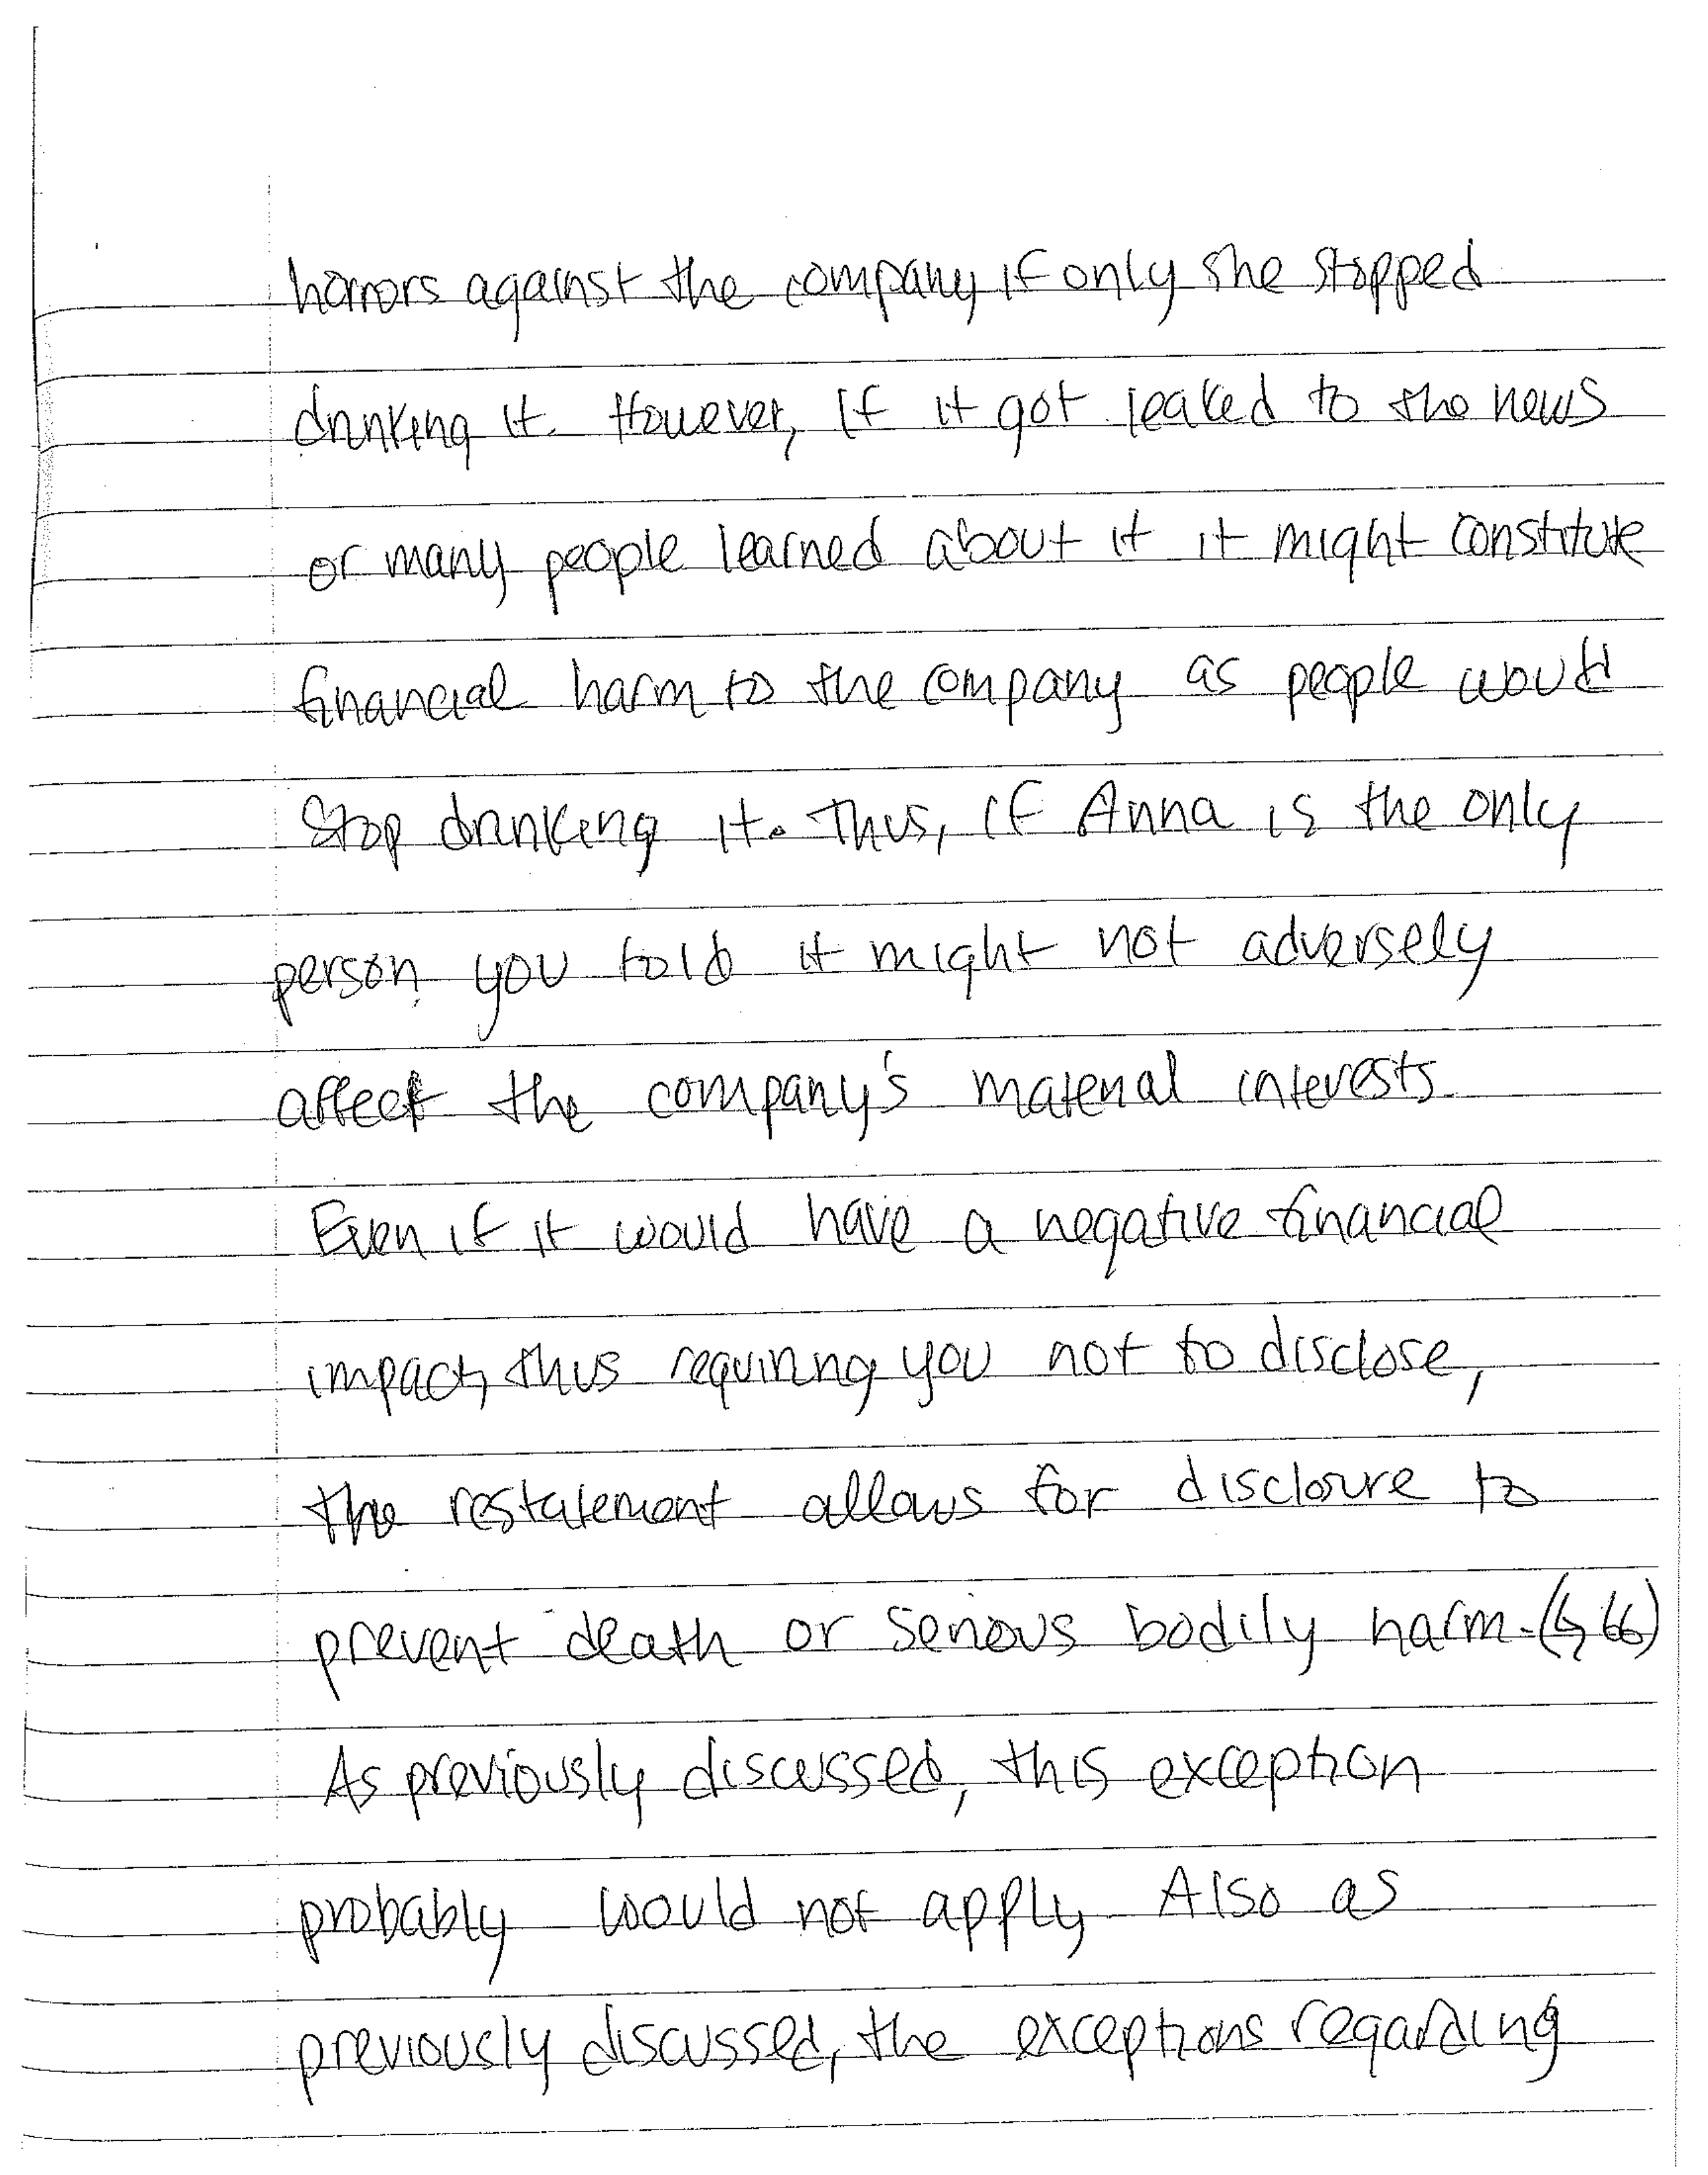 horrors against the company if only she stopped
drinking it. However, if it got leaked to the news
or many people learned about it it might constitute
financial harm to the company as people would
stop drinking it. Thus, if Anna is the only
person you told it might not adversely
affect the company's material interests.
Even if it would have a negative financial
impact, thus requiring you not to disclose,
the restatement allows for disclosure to
prevent death or serious bodily harm. (§ 66)
As previously discussed, this exception
probably would not apply. Also as
previously discussed, the exceptions regarding